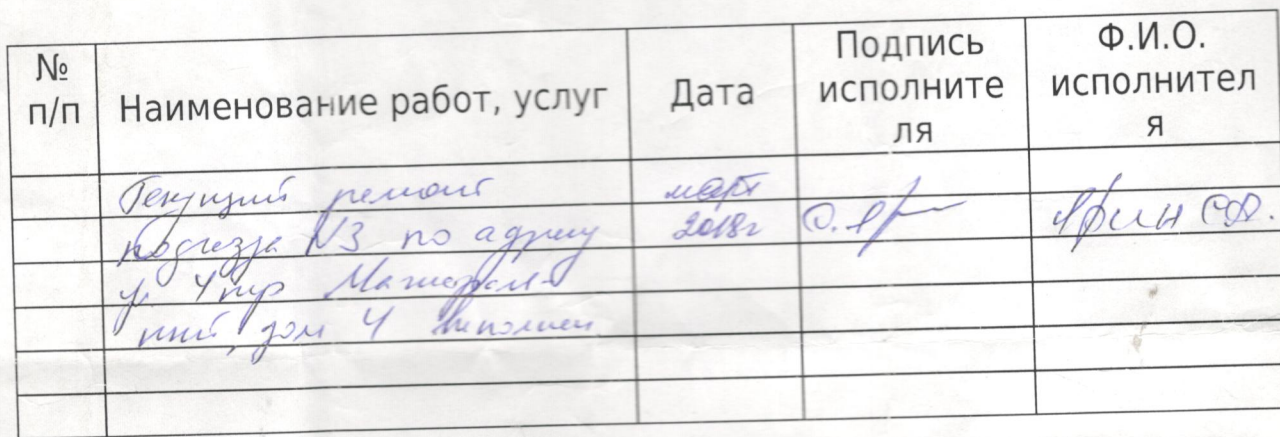 № п/п Наименование работ, услуг Дата Подпись исполнителя Ф.И.О. исполнителя
Текущий ремонт март
подъезда №3 по адресу 2018г
Магистраль-
ный, дом 4 выполнен